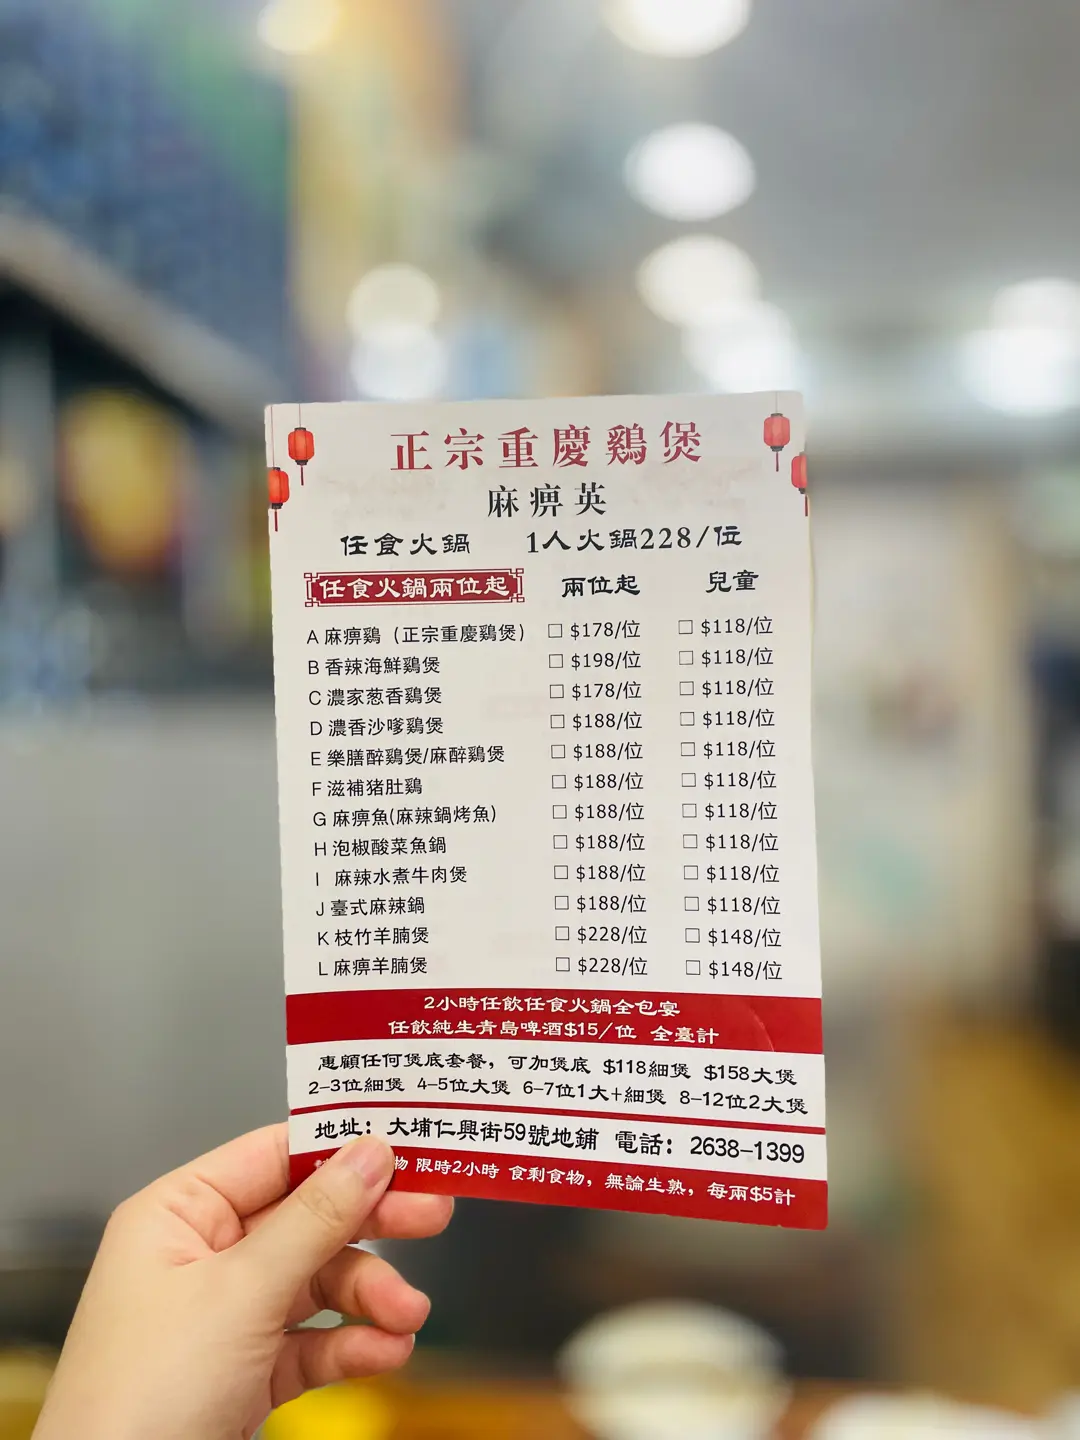 正宗重慶鷄煲
麻痹英
任食火鍋 1人火鍋228/位
任食火鍋兩位起 兩位起 兒童
A 麻痹鷄（正宗重慶鷄煲） □ $178/位 □ $118/位
B 香辣海鮮鷄煲 □ $198/位 □ $118/位
C 濃家葱香鷄煲 □ $178/位 □ $118/位
D 濃香沙嗲鷄煲 □ $188/位 □ $118/位
E 樂膳醉鷄煲/麻醉鷄煲 □ $188/位 □ $118/位
F 滋補猪肚鷄 □ $188/位 □ $118/位
G 麻痹魚(麻辣鍋烤魚) □ $188/位 □ $118/位
H 泡椒酸菜魚鍋 □ $188/位 □ $118/位
I 麻辣水煮牛肉煲 □ $188/位 □ $118/位
J 臺式麻辣鍋 □ $188/位 □ $118/位
K 枝竹羊腩煲 □ $228/位 □ $148/位
L 麻痹羊腩煲 □ $228/位 □ $148/位
2小時任飲任食火鍋全包宴
任飲純生青島啤酒$15/位 全臺計
惠顧任何煲底套餐，可加煲底 $118細煲 $158大煲
2-3位細煲 4-5位大煲 6-7位1大+細煲 8-12位2大煲
地址：大埔仁興街59號地鋪 電話：2638-1399
物 限時2小時 食剩食物，無論生熟，每兩$5計